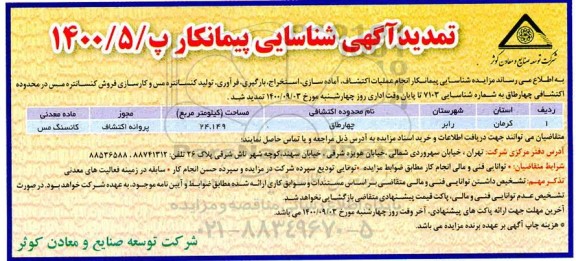 تمدید آگهی شناسایی پیمانکار پ/۱۴۰۰/۵
شرکت توسعه صنایع و معادن کوثر
به اطلاع می رساند مزایده شناسایی پیمانکار انجام عملیات اکتشاف، آماده سازی، استخراج، بارگیری، فرآوری، تولید کنسانتره مس و کارسازی فروش کنسانتره مس در محدوده
اکتشافی چهارطاق به شماره شناسایی ۷۱۰۳ تا پایان وقت اداری روز چهارشنبه مورخ ۱۴۰۰/۰۹/۰۳ تمدید شد.
ردیف استان شهرستان نام محدوده اکتشافی مساحت (کیلومتر مربع) مجوز ماده معدنی
۱ کرمان رابر چهارطاق ۲۴.۱۴۹ پروانه اکتشاف کانسنگ مس
متقاضیان می توانند جهت دریافت اطلاعات و خرید اسناد مزایده به آدرس ذیل مراجعه و یا تماس حاصل نمایند:
آدرس دفتر مرکزی شرکت: تهران، خیابان سهروردی شمالی، خیابان هویزه شرقی، خیابان سهند، کوچه شهر تاش شرقی پلاک ۳۶ تلفن: ۸۸۷۴۱۳۱۲ ـ ۸۸۵۳۶۵۸۸
شرایط متقاضیان: • توانایی فنی و مالی انجام کار مطابق ضوابط مزایده • توانایی تودیع سپرده شرکت در مزایده و سپرده حسن انجام کار • سابقه در زمینه فعالیت های معدنی
تذکر مهم: تشخیص داشتن توانایی فنی و مالی متقاضی بر اساس مستندات و سوابق کاری ارائه شده مطابق ضوابط و آیین نامه موجود، به عهده شرکت خواهد بود. در صورت
تشخیص عدم توانایی فنی و مالی، پاکت قیمت پیشنهادی متقاضی بازگشایی نخواهد شد.
آخرین مهلت جهت ارائه پاکت های پیشنهادی، آخر وقت روز چهارشنبه مورخ ۱۴۰۰/۰۹/۰۳ می باشد.
• هزینه چاپ آگهی بر عهده برنده مزایده می باشد.
شرکت توسعه صنایع و معادن کوثر
۰۲۱-۸۸۳۴۹۶۷۰-۵